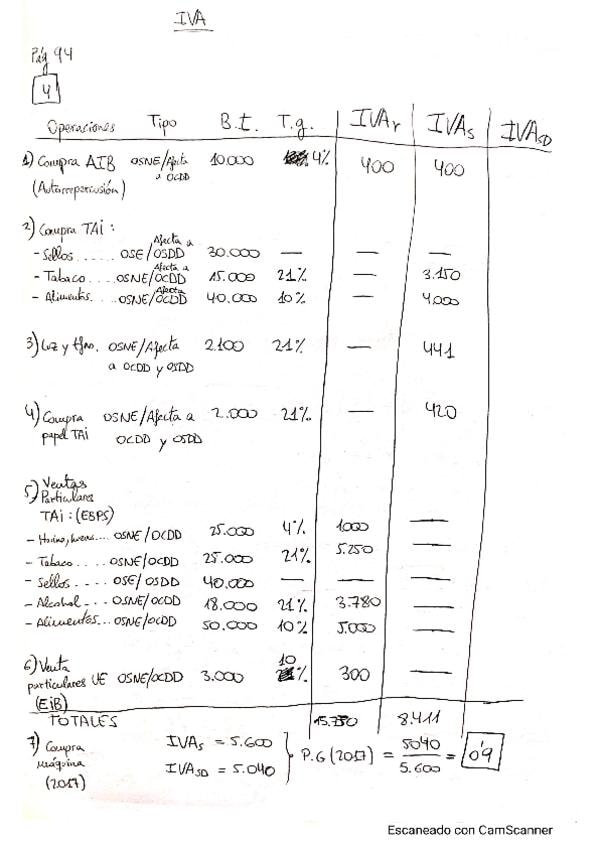 IVA
Pág 94
4
Operaciones Tipo B.I. T.g. IVAr IVAs IVASD
1) Compra AIB OSNE/Afecta 10.000 4% 400 400
(Autorrepercusión) a OCDD
2) Compra TAI:
- Sellos..... OSE/Afecta a OSDD 30.000 — — —
- Tabaco.... OSNE/Afecta a OCDD 15.000 21% — 3.150
- Alimentos.. OSNE/Afecta OCDD 40.000 10% — 4.000
3) Luz y tfno. OSNE/Afecta 2.100 21% — 441
a OCDD y OSDD
4) Compra OSNE/Afecta a 2.000 21% — 420
papel TAI OCDD y OSDD
5) Ventas
Particulares
TAI: (EBPS)
- Harina, ... OSNE/OCDD 25.000 4% 1000 —
- Tabaco.... OSNE/OCDD 25.000 21% 5.250 —
- Sellos..... OSE/OSDD 40.000 — — —
- Alcohol... OSNE/OCDD 18.000 21% 3.780 —
- Alimentos... OSNE/OCDD 50.000 10% 5.000 —
6) Venta 10
particulares UE OSNE/OCDD 3.000 % 300 —
(EIB)
TOTALES 8.411
7) Compra IVAs = 5.600
máquina IVASD = 5.040
(2017) P.G (2017) = 5040 / 5.600 = 0'9
Escaneado con CamScanner